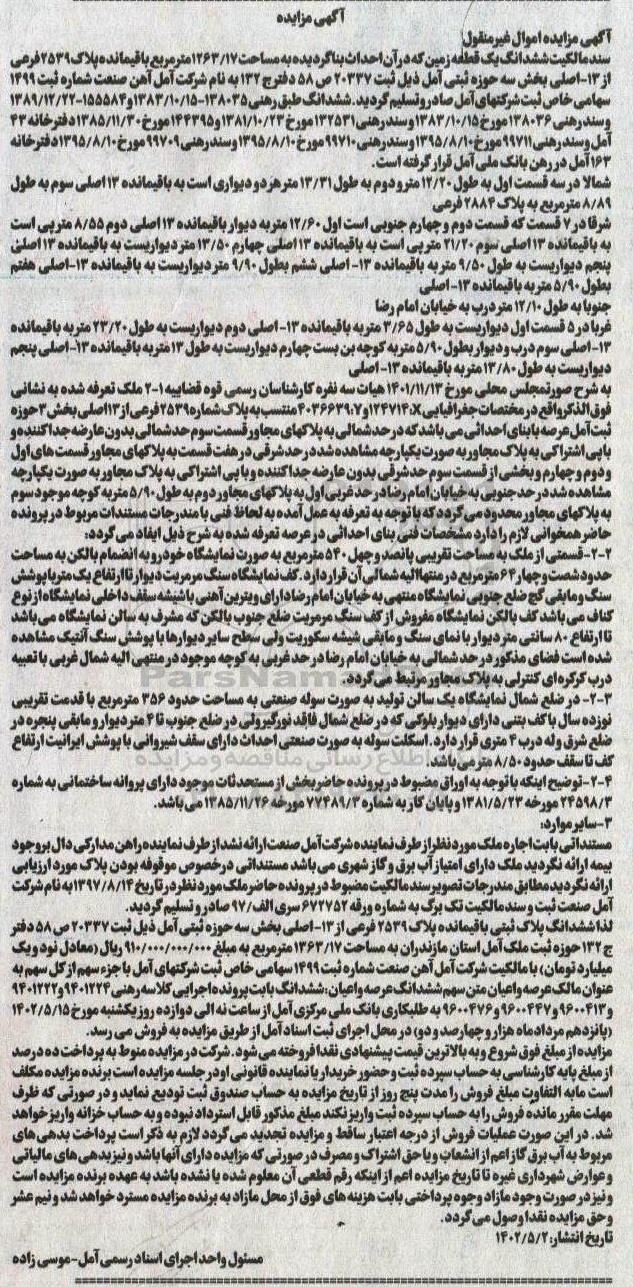 آگهی مزایده
آگهی مزایده اموال غیرمنقول
سند مالکیت ششدانگ یک قطعه زمین که در آن احداث بنا گردیده به مساحت ۱۲۶۳/۱۷ مترمربع باقیمانده پلاک ۲۵۳۹ فرعی
از ۱۳-اصلی بخش سه حوزه ثبتی آمل ذیل ثبت ۲۰۳۳۷ ص ۵۸ دفتر ج ۱۳۲ به نام شرکت آمل آهن صنعت شماره ثبت ۱۴۹۹
سهامی خاص ثبت شرکتهای آمل صادر و تسلیم گردید. ششدانگ طبق رهنی ۱۳۸۰۳۵-۱۳۸۳/۱۰/۱۵ و ۱۵۵۵۸۴-۱۳۸۹/۱۲/۲۲
و سند رهنی ۱۳۸۰۳۶ مورخ ۱۳۸۳/۱۰/۱۵ و سند رهنی ۱۳۲۵۳۱ مورخ ۱۳۸۱/۱۰/۲۳ و ۱۴۴۳۹۵ مورخ ۱۳۸۵/۱۱/۳۰ دفترخانه ۴۳
آمل و سند رهنی ۹۹۷۱۱ مورخ ۱۳۹۵/۸/۱۰ و سند رهنی ۹۹۷۱۰ مورخ ۱۳۹۵/۸/۱۰ و سند رهنی ۹۹۷۰۹ مورخ ۱۳۹۵/۸/۱۰ دفترخانه
۱۶۳ آمل در رهن بانک ملی آمل قرار گرفته است.
شمالا در سه قسمت اول به طول ۱۲/۲۰ متر و دوم به طول ۱۳/۳۱ متر هر دو دیواری است به باقیمانده ۱۳ اصلی سوم به طول
۸/۸۹ مترمربع به پلاک ۲۸۸۴ فرعی
شرقا در ۷ قسمت که قسمت دوم و چهارم جنوبی است اول ۱۲/۶۰ متر به دیوار باقیمانده ۱۳ اصلی دوم ۸/۵۵ متر پی است
به باقیمانده ۱۳ اصلی سوم ۲۱/۲۰ متر پی است به باقیمانده ۱۳ اصلی چهارم ۱۳/۵۰ متر دیواریست به باقیمانده ۱۳ اصلی
پنجم دیواریست به طول ۹/۵۰ متر به باقیمانده ۱۳- اصلی ششم بطول ۹/۹۰ متر دیواریست به باقیمانده ۱۳-اصلی هفتم
بطول ۵/۹۰ متر به باقیمانده ۱۳-اصلی
جنوبا به طول ۱۲/۱۰ متر درب به خیابان امام رضا
غربا در ۵ قسمت اول دیواریست به طول ۳/۶۵ متر به باقیمانده ۱۳- اصلی دوم دیواریست به طول ۲۳/۲۰ متر به باقیمانده
۱۳-اصلی سوم درب و دیوار بطول ۵/۹۰ متر به کوچه بن بست چهارم دیواریست به طول ۱۳ متر به باقیمانده ۱۳-اصلی پنجم
دیواریست به طول ۱۳/۸۰ متر به باقیمانده ۱۳- اصلی
به شرح صورتمجلس محلی مورخ ۱۴۰۱/۱۱/۱۳ هیات سه نفره کارشناسان رسمی قوه قضاییه ۱-۲ ملک تعرفه شده به نشانی
فوق الذکر واقع در مختصات جغرافیایی X:۱۲۴۷۱۴ و Y:۴۰۳۶۶۳۹ منتسب به پلاک شماره ۲۵۳۹ فرعی از ۱۳ اصلی بخش ۳ حوزه
ثبت آمل عرصه با بنای احداثی می باشد که در حد شمالی به پلاکهای مجاور قسمت سوم حد شمالی بدون عارضه جداکننده و
با پی اشتراکی به پلاک مجاور به صورت یکپارچه مشاهده شد در حد شرقی در هفت قسمت به پلاکهای مجاور قسمت های اول
و دوم و چهارم و بخشی از قسمت سوم حد شرقی بدون عارضه جداکننده و با پی اشتراکی به پلاک مجاور به صورت یکپارچه
مشاهده شد در حد جنوبی به خیابان امام رضا در حد غربی اول به پلاکهای مجاور دوم به طول ۵/۹۰ متر به کوچه موجود سوم
به پلاکهای مجاور محدود می گردد که با توجه به تعرفه به عمل آمده به لحاظ فنی با مندرجات مستندات مربوط در پرونده
حاضر همخوانی لازم را دارد مشخصات فنی بنای احداثی در عرصه تعرفه شده به شرح ذیل ایفاد می گردد:
۲-۲-قسمتی از ملک به مساحت تقریبی پانصد و چهل ۵۴۰ مترمربع به صورت نمایشگاه خودرو به انضمام بالکن به مساحت
حدود شصت و چهار ۶۴ مترمربع در منتها الیه شمالی آن قرار دارد. کف نمایشگاه سنگ مرمریت دیوار تا ارتفاع یک متر با پوشش
سنگ و مابقی گچ ضلع جنوبی نمایشگاه منتهی به خیابان امام رضا دارای ویترین آهنی با شیشه سقف داخلی نمایشگاه از نوع
کناف می باشد کف بالکن نمایشگاه مفروش از کف سنگ مرمریت ضلع جنوب بالکن که مشرف به سالن نمایشگاه می باشد
تا ارتفاع ۸۰ سانتی متر دیوار با نمای سنگ و مابقی شیشه سکوریت ولی سطح سایر دیوارها با پوشش سنگ آنتیک مشاهده
شده است فضای مذکور در حد شمالی به خیابان امام رضا در حد غربی به کوچه موجود در منتهی الیه شمال غربی با تعبیه
درب کرکره ای کنترلی به پلاک مجاور مرتبط می گردد.
۲-۳- در ضلع شمال نمایشگاه یک سالن تولید به صورت سوله صنعتی به مساحت حدود ۳۵۶ مترمربع با قدمت تقریبی
نوزده سال با کف بتنی دارای دیوار بلوکی که در ضلع شمال فاقد نورگیر ولی در ضلع جنوب تا ۴ متر دیوار و مابقی پنجره در
ضلع شرق وله درب ۴ متری قرار دارد. اسکلت سوله به صورت صنعتی احداث دارای سقف شیروانی با پوشش ایرانیت ارتفاع
کف تا سقف حدود ۸/۵۰ متر می باشد
۲-۴-توضیح اینکه با توجه به اوراق مضبوط در پرونده حاضر بخش از مستحدثات موجود دارای پروانه ساختمانی به شماره
۲۴۵۹۸/۳ مورخه ۱۳۸۱/۵/۲۳ و پایان کار به شماره ۷۷۴۸۹/۳ مورخه ۱۳۸۵/۱۱/۲۶ می باشد.
۳-سایر موارد:
مستنداتی بابت اجاره ملک مورد نظر از طرف نماینده شرکت آمل صنعت ارائه نشد از طرف نماینده راهن مدارکی دال بر وجود
بیمه ارائه نگردید ملک دارای امتیاز آب برق و گاز شهری می باشد مستنداتی درخصوص موقوفه بودن پلاک مورد ارزیابی
ارائه نگردید مطابق مندرجات تصویر سند مالکیت مضبوط در پرونده حاضر ملک مورد نظر در تاریخ ۱۳۹۷/۸/۱۴ به نام شرکت
آمل صنعت ثبت و سند مالکیت تک برگ به شماره ورقه ۶۷۲۷۵۲ سری الف/۹۷ صادر و تسلیم گردید.
لذا ششدانگ پلاک ثبتی باقیمانده پلاک ۲۵۳۹ فرعی از ۱۳-اصلی بخش سه حوزه ثبتی آمل ذیل ثبت ۲۰۳۳۷ ص ۵۸ دفتر
ج ۱۳۲ حوزه ثبت ملک آمل استان مازندران به مساحت ۱۳۶۳/۱۷ مترمربع به مبلغ ۹۱۰/۰۰۰/۰۰۰/۰۰۰ ریال (معادل نود و یک
میلیارد تومان) با مالکیت شرکت آمل آهن صنعت شماره ثبت ۱۴۹۹ سهامی خاص ثبت شرکتهای آمل با جزء سهم از کل سهم به
عنوان مالک عرصه و اعیان متن سهم ششدانگ عرصه و اعیان: ششدانگ بابت پرونده اجرایی کلاسه رهنی ۹۴۰۱۲۲۴ و ۹۴۰۱۲۲۲
و ۹۶۰۰۴۱۳ و ۹۶۰۰۴۴۷ و ۹۶۰۰۴۷۶ به طلبکاری بانک ملی مرکزی آمل از ساعت نه الی دوازده روز یکشنبه مورخ ۱۴۰۲/۵/۱۵
(پانزدهم مردادماه هزار و چهارصد و دو) در محل اجرای ثبت اسناد آمل از طریق مزایده به فروش می رسد.
مزایده از مبلغ فوق شروع و به بالاترین قیمت پیشنهادی نقدا فروخته می شود. شرکت در مزایده منوط به پرداخت ده درصد
از مبلغ پایه کارشناسی به حساب سپرده ثبت و حضور خریدار یا نماینده قانونی او در جلسه مزایده است برنده مزایده مکلف
است مابه التفاوت مبلغ فروش را مدت پنج روز از تاریخ مزایده به حساب صندوق ثبت تودیع نماید و در صورتی که ظرف
مهلت مقرر مانده فروش را به حساب سپرده ثبت واریز نکند مبلغ مذکور قابل استرداد نبوده و به حساب خزانه واریز خواهد
شد. در این صورت عملیات فروش از درجه اعتبار ساقط و مزایده تجدید می گردد لازم به ذکر است پرداخت بدهی های
مربوط به آب برق گاز اعم از انشعاب و یا حق اشتراک و مصرف در صورتی که مزایده دارای آنها باشد و نیز بدهی های مالیاتی
و عوارض شهرداری غیره تا تاریخ مزایده اعم از اینکه رقم قطعی آن معلوم شده یا نشده باشد به عهده برنده مزایده است
و نیز در صورت وجود مازاد وجوه پرداختی بابت هزینه های فوق از محل مازاد به برنده مزایده مسترد خواهد شد و نیم عشر
و حق مزایده نقدا وصول می گردد.
تاریخ انتشار: ۱۴۰۲/۵/۲
مسئول واحد اجرای اسناد رسمی آمل-موسی زاده